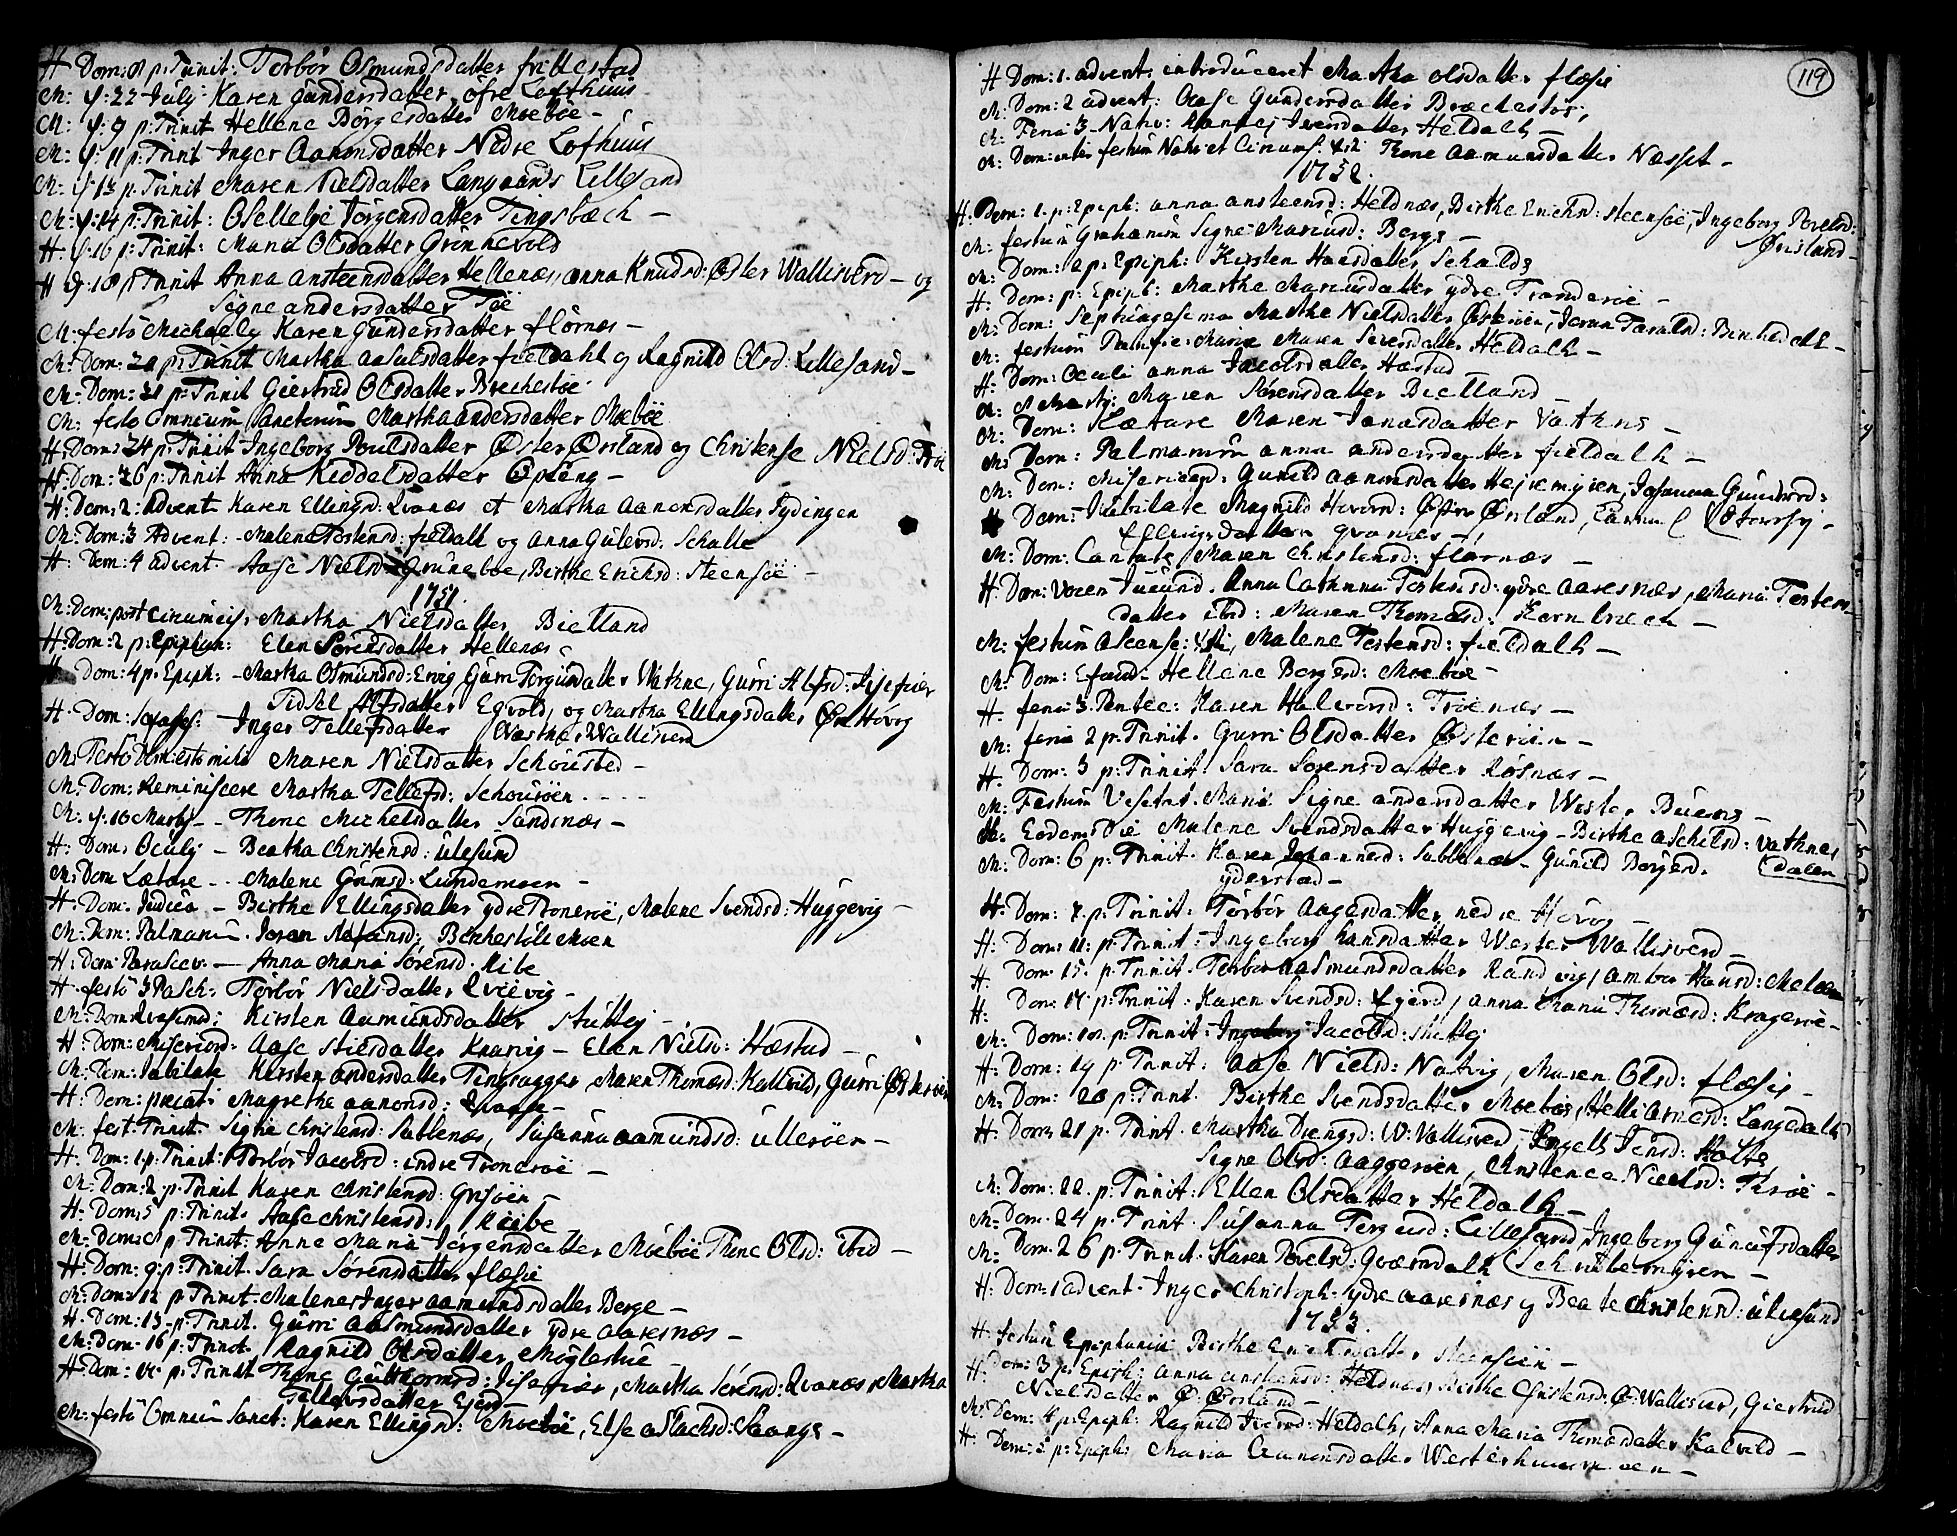 H Dom: 8 p: Trinit: Torbör Osmundsdatter frillestad
M: f: 22 July Karen Gundersdatter öfre Lofthuus
M: f: 9 p: Trinit Hellene Börgesdatter Moeböe –
M: f: 11 p: Trinit Inger Aanonsdatter Nedre Lofthuus
M: f: 13 p: Trinit Maren Nielsdatter Langaards Lillesand
M: f: 14 p: Trinit: Osellebe Jörgensdatter Tingsbæch –
H f: 16 p: Trinit: Maria Olsdatter Grönnevold
H D: 18 p Trinit Anna Ansteensdatter Hellenæs, anna Knudsd: Öster Wallisverd – og
Signe andersdatter Töe
M: festo Michaely Karen Gundersdatter flörnæs –
M: Dom: 20 p: Trinit Martha Aslulsdatter fieldahl og Ragnild Olsd: Lillesand –
M: Dom: 21 p: Trinit Giertrud Olsdatter Brechestöe
M: festo Omnium Sanctorum Martha andersdatter Mæböe
H: Dom: 24 p: Trinit Ingeborg Poulsdatter Öster Örsland og Christense Nielsd: Tröe
H: Dom: 26 p: Trinit Anna Keddelsdatter Öpeng –
H: Dom: 2: Advent Karen Ellingsd: Qvanæs et Martha Aanonsdatter Tydingen
M: Dom: 3 Advent: Malene Torstensd: fieldall og Anna Gulevsd. Schalle
H: Dom: 4 advent Aase Nielsd: Gruneböe, Birthe Erichsd: Steensöe –
1751.
M: Dom: post circumcis: Martha Nielsdatter Bielland
H: Dom: 2 p: Epiphan: Elen Sörensdatter Hellenæs –
H Dom: 4 p: Epiph: Martha Osmundsd: Gurri Torgiusdatter Wathne, Gurri Alfsd:
Sidsel Alfsdatter Egvold, og Martha Ellingsdatter Hövog
H. Dom: Sexages: Inger Tellefsdatter Wæster Wallisverd
M: Festo Maren Nielsdatter Schousted –
M: Dom: Reminiscere Martha Tellefsd: Schouröen . . . .
M: f: 16 Marty – Thone Michelsdatter Sandnæs –
H: Dom: Oculy – Beatha Christensd: Ulesund
M: Dom Lætare – Malene Gormsd: Lundemoen –
H: Dom: Judica – Birthe Ellingsdatter ydre Troneröe, Malene Svendsd: Huggevig –
M: Dom: Palmarum. Joran Birchestöle Moen
H: Dom Parascev: – Anna Maria Sörensd. Ribe
H. festo 3 Pasch: Törbör Nielsdatter Qveevig –
M: Dom: Qvasimd; Kirsten Aamundsdatter Stuttej –
H: Dom: Misericord: Aase Stiesdatter Kranvig – Elen Nielsd: Hæstad –
M: Dom: Jubilate Kirsten andersdatter Tingsagger, Maren Thomæsd: Kallvild, Gurri Österöen
H: Dom: Margrethe aanonsd: Qvaase –
M: fest: Trinit. Signe Christensd: Sablenæs, Susanna aamundsd: Ulleröen –
H: Dom: 1. p: Trinit: Törbör Jacobsd: indre Troneröe –
M: Dom: 2. p: Trinit Karen Christensd: Grisöen –
H: Dom: 5 p: Trinit. Aase Christensd: Reibe
M: Dom: p: Trinit: Anne Maria Jörgensdatter Moeböe Thone Olsd: ibid –
H: Dom: 9: p: Trinit. Sara Sörensdatter flæsie
M: Dom: 12 p: Trinit. Malene Inger aamundsdatter Berge –
H. Dom: 13 – p: Trinit. Gurri Aasmundsdatter ydre aaresnæs –
M: Dom: 16 p: Trinit. Ragnild Olsdatter Möglestue
H. Dom: p: Trinit Thone Guttormsd: Martha Sörensd: Qvanæs, Martha
Tellefsdatter Ejerd –
M: festo Omnium Sanct: Karen Ellingsd: Moeböe, Else aslachsd: Saange –
119
H Dom: 1. advent: introduceret Martha Olsdatter flæsie
M: Dom: 2 advent: Aase Gundersdatter Brechestöe,
M: Feria 3 Nativ: Iversdatter Heldalh –
M: Dom: inter festum Nativ: et Circums: Thone Aamunsdatter Næsset –
1752.
H. Dom: 1. p: Epiph: anna ansteensd: Heldnæs, Birthe Erichsd: Steensöe, Ingeborg Povelsd:
Örisland –
M: festum Signe Mariusd: Berge –
M: Dom: 2 p: Epiph: Kirsten Hansdatter Schalde
H: Dom: p: Epiph: Marthe Mariusdatter ydre Tranderöe –
M: Dom: Septuagesima Marthe Nielsdatter Österöen, Joran Taralsd:
M: festum Purific: Mariæ Maren Sörensdatter Heldalh –
H: Dom: Oculi anna Jacobsdatter Hæstad
M: 8 Marty: Maren Sörensdatter Bielland –
M: Dom: Lætare Maren Jonasdatter Vathne –
M: Dom: Palmarum anna andersdatter fieldalh –
M: Dom: Misericord: Gunild aanonsdatter Heiremyren, Johanna Gundersd:
H Dom: Jubilate Magnild Havorsd: Östre Örsland, Karen
Ellingsdatter qvanæs –
M: Dom: Cantate Maren Christensd: flörnæs –
H: Dom: Vocem Jucund. Anna Cathrina Torstensd: ydre aaresnæs, Maria Torsten
datter ibid: Maren Thomæsd: Kornbrech –
M: festum Ascens: Malene Torstensd: fieldalh –
M: Dom: Exaud – Hellene Borgersd: Moeböe –
H: feria 3. Pentec: Karen Halvorsd: Tröenæs –
M: feria 2 p: Trinit. Gurri Olsdatter Österöen –
H: Dom: 3 p: Trinit: Sara Sörensdatter Rösnæs –
M: Festum Visitat. Maria Signe andersdatter Wester Buene –
M: Eodem Die Malene Svendsdatter Huggevig – Birthe aschelsd: Vathnes
dalen
M: Dom: 6 p: Trinit. Karen Johannesd: Sablenæs – Gunild Borgersd.
yderstad –
H: Dom: 7. p: Trinit: Törbör aagesdatter nedre Hövog –
H: Dom: 11: p: Trinit: Ingeborg hansdatter Wester Wallisverd –
H: Dom: 15. p: Trinit. Torbor aasmundsdatter Randvig, Ambor Hansd:
H: Dom: p: Trinit: Karen Svendsd: anna Maria Thomæsd: Krageröe –
M: Dom: 18. p: Trinit: Ingeborg Jacobsd: Stuttej
H: Dom: 19 p: Trinit: Aase Nielsd: Natvig, Maren Olsd: flæsie –
M: Dom: 20 p: Trinit. Birthe Svendsdatter Moeböe, Helli arnesd: Langedalh
H: Dom: 21 p: Trinit. Martha Drengsd: W: Vallisverd, Jensd: Holte
Signe Olsd: aaggeröen, Christence Nielsd: Tröe –
M: Dom: 22. p: Trinit: Ellen Olsdatter Heldalh –
M: Dom. 24 p: Trinit. Susanna Torgiusd: Lillesand, Ingeborg Gunulfsdatter
M: Dom: 26 p: Trinit. Karen Povelsd: Qværndalh Schribermyren –
H: Dom: 1 advent. Inger Christoph: ydre aaresnæs og Beate Christensd: Ulesund
1753.
H: festum Epiphaniæ Birthe Erichsdatter Steensöen –
H: Dom: 3 p: Epiph: anna ansteensd: Heldnæs, Birthe Christensd: Ö: Wallisverd, Giertrud
Nielsdatter Ö: Örsland –
M: Dom: 4 p: Epiph: Ragnild Iversd: Heldalh, Anna Maria Thomasdatter Kalvild –
H: Dom: 5 p: Epiph: Maria Aanonsdatter